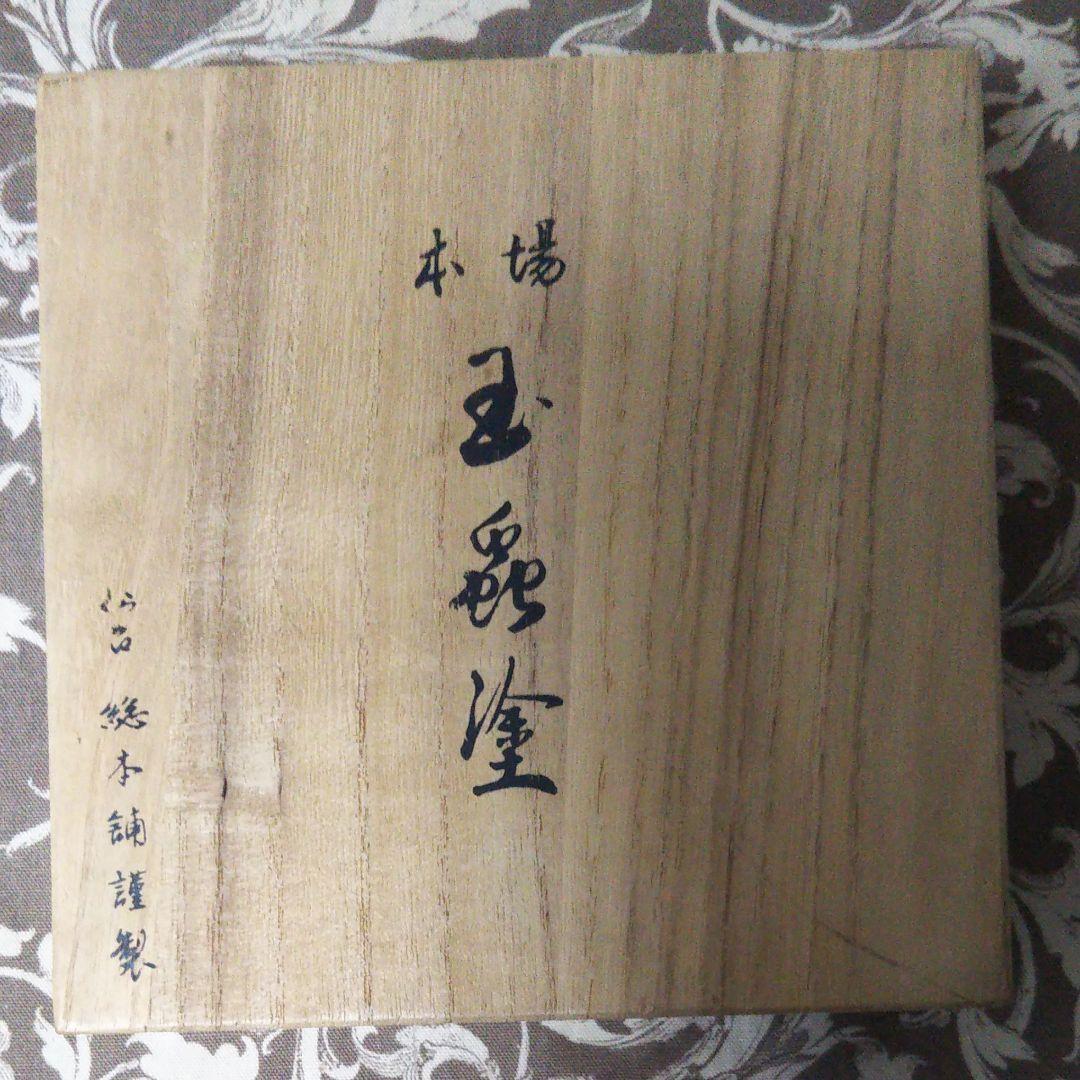 本場
玉蟲塗
仙台 總本舗謹製